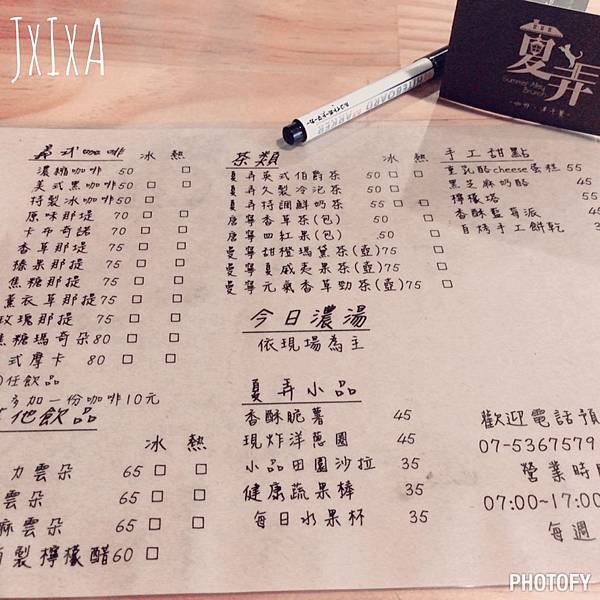 JxIxA
夏弄
Summer Alley
Brunch
義式咖啡 冰 熱
濃縮咖啡 50
美式黑咖啡 50
特製冰咖啡 50
原味那堤 70
卡布奇諾 70
香草那堤 75
榛果那堤 75
焦糖那堤 75
薰衣草那堤 75
玫瑰那堤 75
焦糖瑪奇朵 80
式摩卡 80
任飲品
多加一份咖啡10元
他飲品
冰 熱
力雲朵 65
雲朵 65
麻雲朵 65
製檸檬醋 60
茶類 冰 熱
夏弄英式伯爵茶 50
夏弄久製冷泡茶 50
夏弄特調鮮奶茶 55
唐寧香草茶(包) 50
唐寧四紅果(包) 50
曼寧甜橙瑪黛茶(壺) 75
曼寧夏威夷果茶(壺) 75
曼寧元氣香草勁茶(壺) 75
今日濃湯
依現場為主
夏弄小品
香酥脆薯 45
現炸洋蔥圈 45
小品田園沙拉 35
健康蔬果棒 35
每日水果杯 35
手工甜點
重乳酪cheese蛋糕 55
黑芝麻奶酪 45
檸檬塔 55
香酥藍莓派 45
自烤手工餅乾 3
歡迎電話預
07-5367579
營業時
07:00~17:00
每週
PHOTOFY